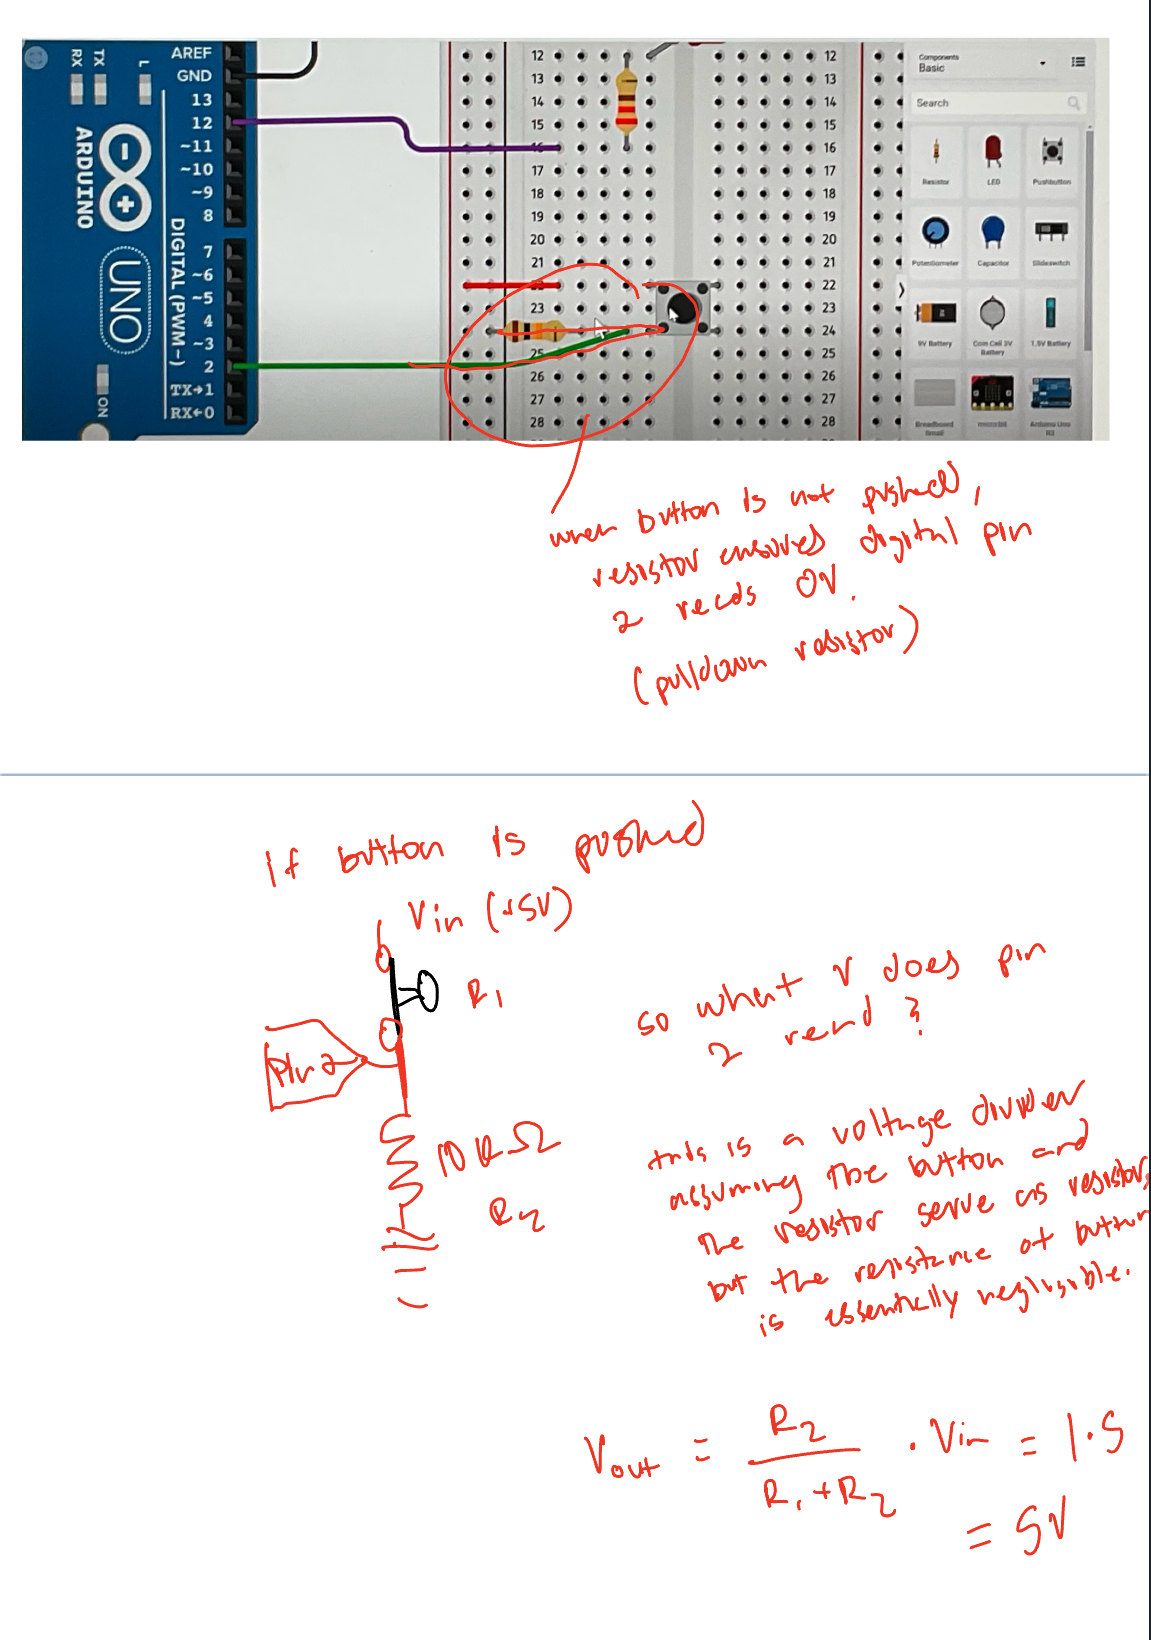 AREF
GND
13
12
~11
~10
~9
8
7
~6
~5
4
~3
2
TX→1
RX←0
DIGITAL (PWM~)
RX
TX
L
ARDUINO
UNO
ON
12 12
13 13
14 14
15 15
16 16
17 17
18 18
19 19
20 20
21 21
22 22
23 23
24 24
25 25
26 26
27 27
28 28
Components
Basic
Search
Resistor LED Pushbutton
Potentiometer Capacitor Slideswitch
9V Battery Coin Cell 3V Battery 1.5V Battery
Breadboard Small micro:bit Arduino Uno R3
when button is not pushed,
resistor ensures digital pin
2 reads 0V.
(pulldown resistor)
If button is pushed
Vin (+5V)
R1
Pin 2
10kΩ
R2
so what V does pin
2 read?
this is a voltage divider
assuming the button and
the resistor serve as resistors,
but the resistance of button
is essentially negligible.
Vout = R2 / (R1 + R2) · Vin = 1·5
= 5V